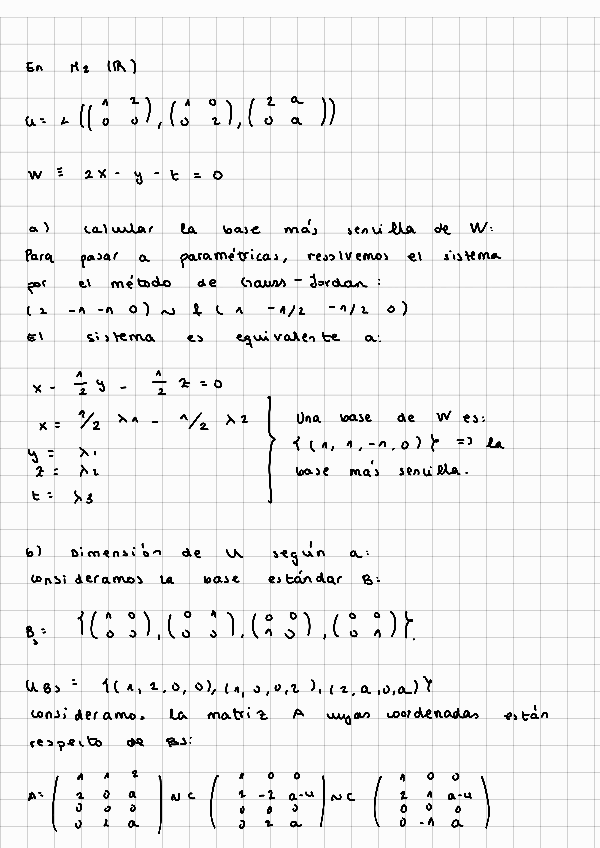 En M2 (R)
U = L ((1 2 0 0), (1 0 0 2), (2 a 0 a))
W ≡ 2x - y - t = 0
a) Calcular la base más sencilla de W:
Para pasar a paramétricas, resolvemos el sistema
por el método de Gauss-Jordan:
(2 -1 -1 0) ~ f (1 -1/2 -1/2 0)
El sistema es equivalente a:
x - 1/2 y - 1/2 z = 0
x = 1/2 λ1 - 1/2 λ2
y = λ1
z = λ2
t = λ3
Una base de W es:
{(1, 1, -1, 0)} => la
base más sencilla.
b) Dimensión de U según a:
Consideramos la base estándar B:
Bs = {(1 0 0 0), (0 1 0 0), (0 0 1 0), (0 0 0 1)}.
UBs = {(1, 2, 0, 0), (1, 0, 0, 2), (2, a, 0, a)}
Consideramos la matriz A cuyas coordenadas están
respecto de Bs:
A = (1 1 2
2 0 a
0 0 0
0 2 a) ~C (1 0 0
2 -2 a-4
0 0 0
0 2 a) ~C (1 0 0
2 1 a-4
0 0 0
0 -1 a)